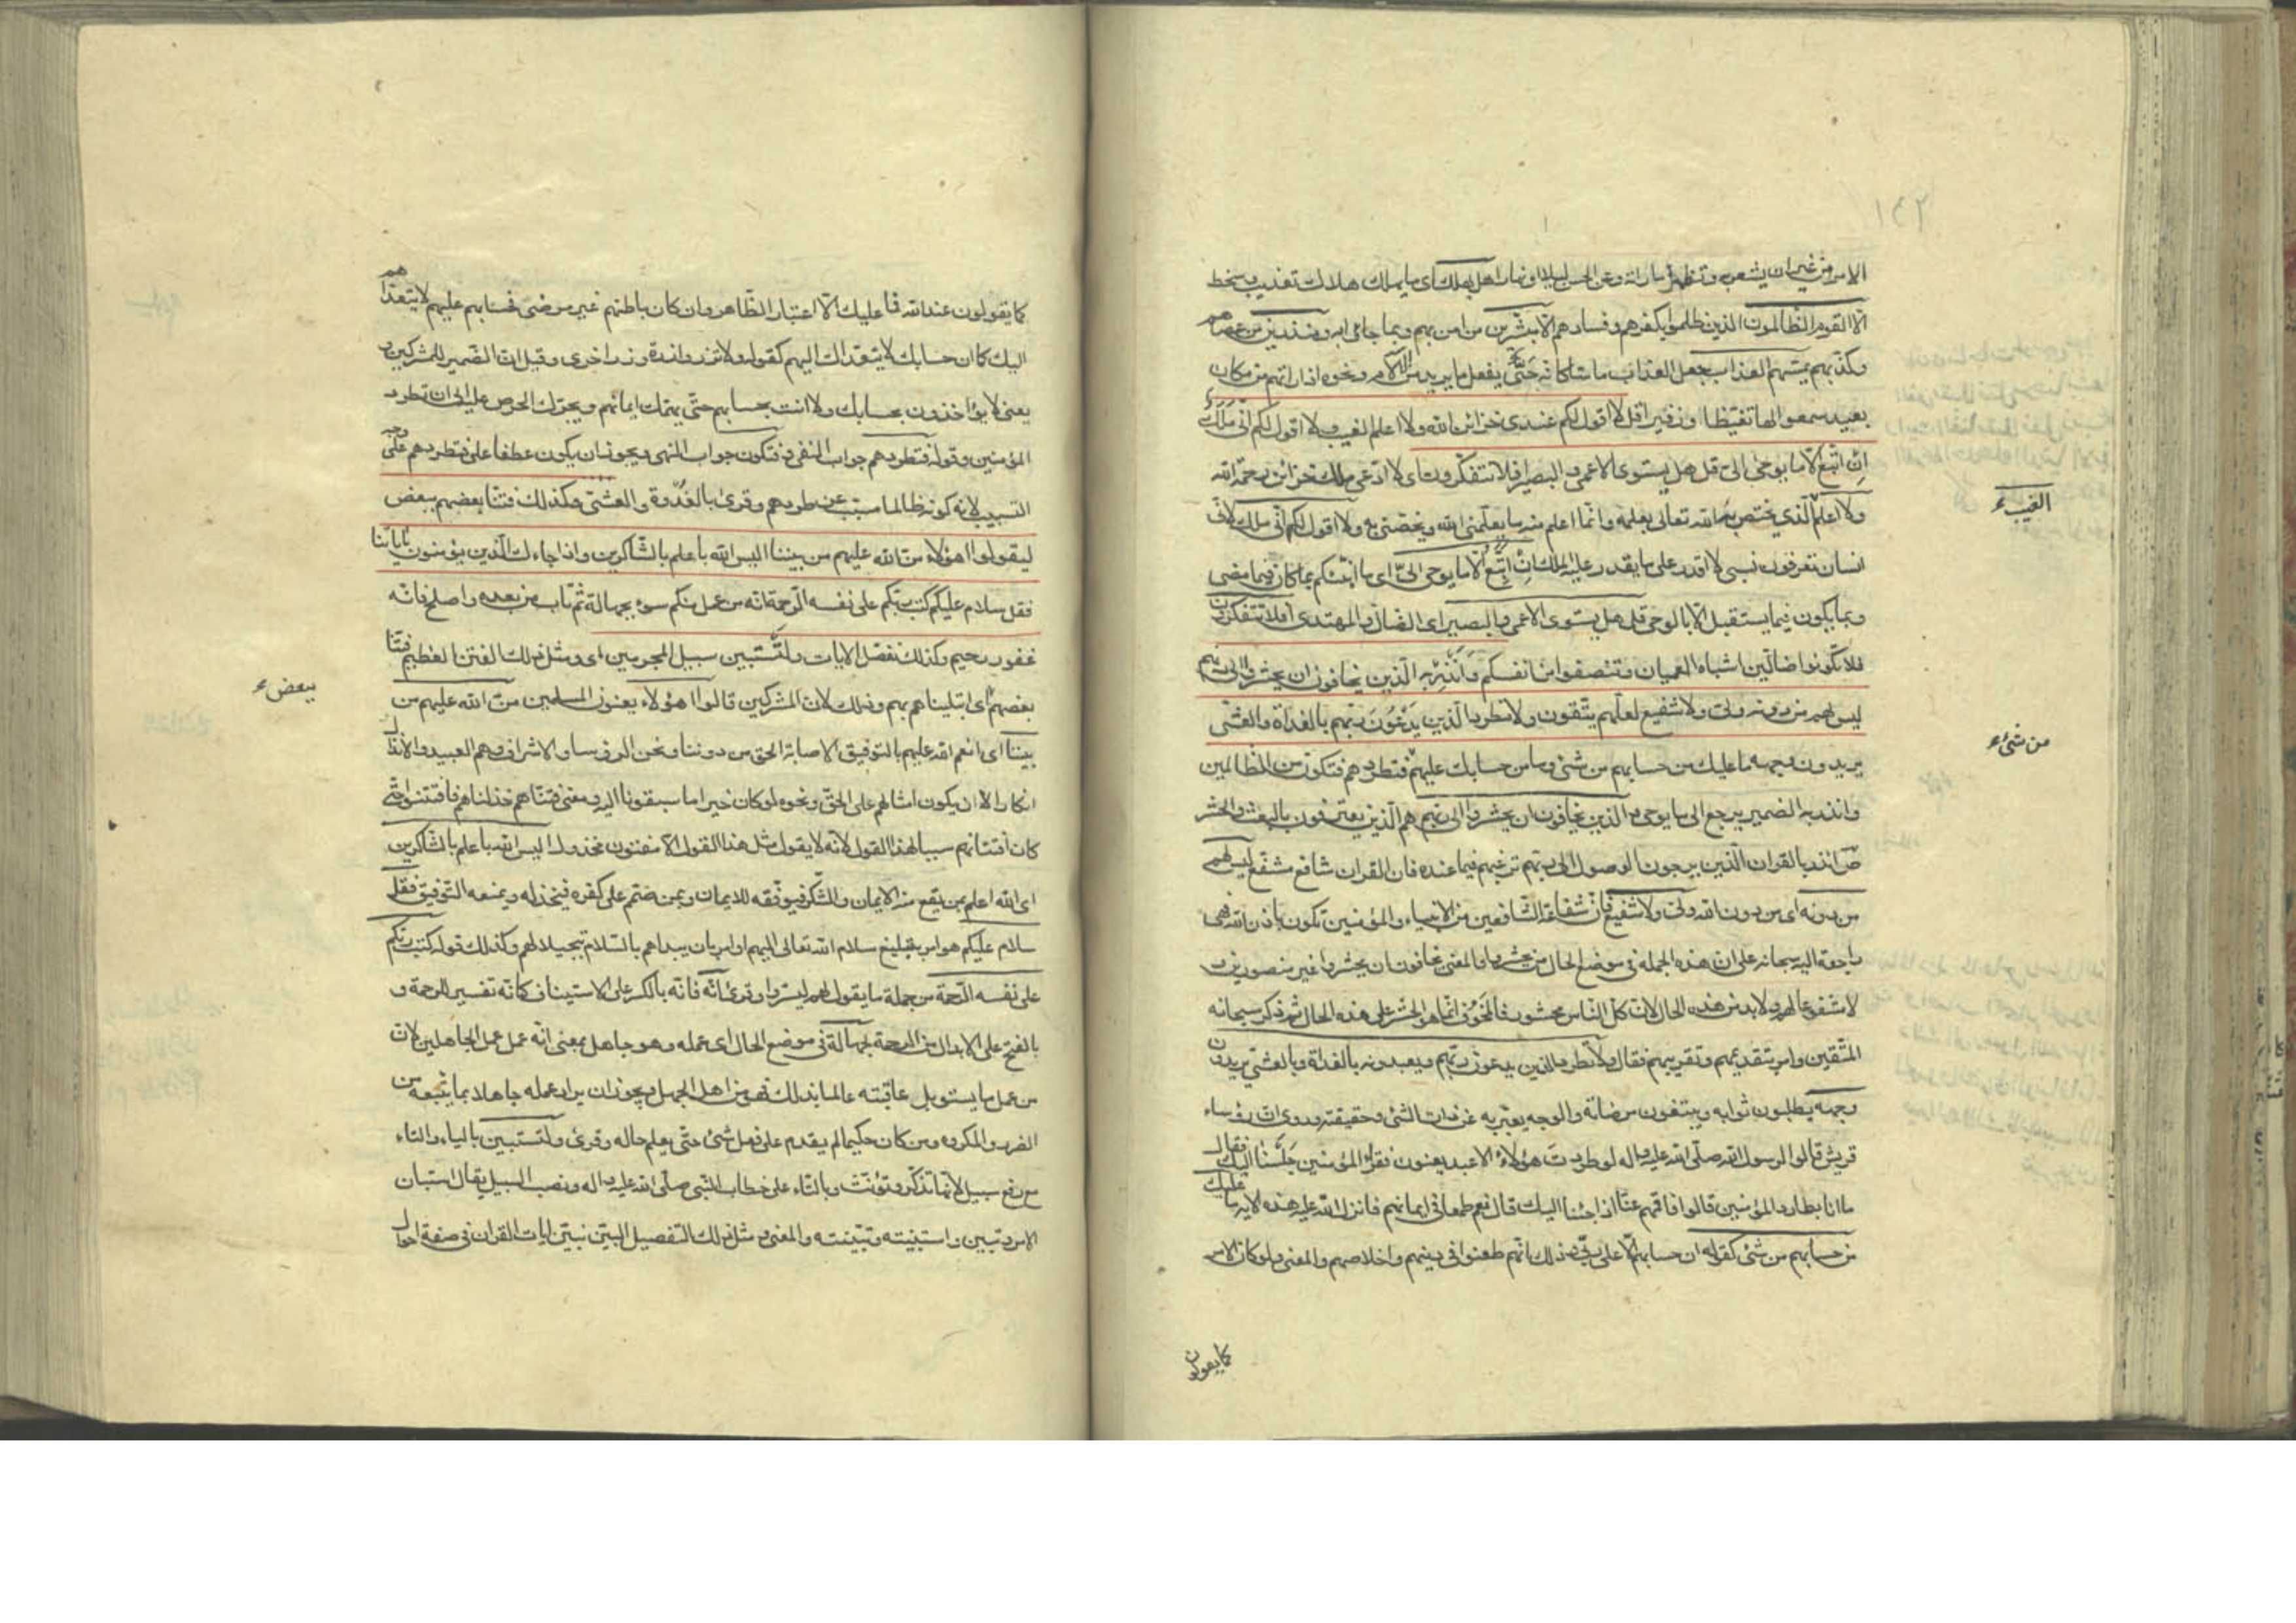 ١٤٢
الامر من غير ان يشعر به وتظهر امارته وعن الحسن ليلا او نهارا هل يهلك اى ما يهلك هلاك تعذيب وسخط
الّا القوم الظّالمون الذين ظلموا بكفرهم وفسادهم الّا مبشّرين من امن بهم وبما جاءوا به ومنذرين من عصاهم
وكذّبهم يمسّهم العذاب جعل العذاب ماسّا كانّه حىّ يفعل ما يريد من الآلام ونحوه اذا راتهم من مكان
بعيد سمعوا لها تغيّظا وزفيرا قل لا اقول لكم عندى خزائن الله ولا اعلم الغيب ولا اقول لكم انّى ملك
ان اتّبع الّا ما يوحى الىّ قل هل يستوى الاعمى والبصير افلا تتفكّرون اى لا ادّعى ملك خزائن رحمة الله
ولا اعلم الّذى يختص به الله تعالى بعلمه وانّما اعلم منه ما يعلّمنى الله ويخصّنى به ولا اقول لكم انّى ملك لانّى
الغيب ء
انسان تعرفون نسبى لا اقدر على ما يقدر عليه الملك ان اتّبع الّا ما يوحى الىّ اى ما انبّئكم بما كان فيما مضى
وبما يكون فيما يستقبل الّا بالوحى قل هل يستوى الاعمى والبصير اى الضالّ والمهتدى افلا تتفكّرون
فلا تكونوا ضالّين اشباه العميان وتنصفوا من انفسكم وانذر به الّذين يخافون ان يحشروا الى ربّهم
ليس لهم من دونه ولىّ ولا شفيع لعلّهم يتّقون ولا تطرد الّذين يدعون ربّهم بالغداة والعشىّ
من شئ ء
يريدون وجهه ما عليك من حسابهم من شئ وما من حسابك عليهم فتطردهم فتكون من الظّالمين
وانذر به الضمير يرجع الى ما يوحى والذين يخافون ان يحشروا الى ربّهم هم الّذين يعترفون بالبعث والحشر
ص انذر بالقران الّذين يرجون الوصول الى ربّهم ترغّبهم فيما عنده فان القران شافع مشفّع ليس لهم
من دونه اى من دون الله ولىّ ولا شفيع فانّ شفاعة الشّافعين من الانبياء والمؤمنين تكون باذن الله فهى
راجعة اليه سبحانه على ان هذه الجملة فى موضع الحال من يحشروا والمعنى يخافون ان يحشروا غير منصورين
لا مشفوعا لهم ولا بد من هذه الحال لانّ كلّ النّاس محشور فالمخوف انّما هو الحشر على هذه الحال ثم ذكر سبحانه
المتّقين وامر بتقديمهم وتقريبهم فقال ولا تطرد الّذين يدعون ربّهم ويعبدونه بالغداة وبالعشىّ يريدون
وجهه يطلبون ثوابه ويبتغون مرضاته والوجه يعبّر به عن ذات الشئ وحقيقته وروى انّ رؤساء
قريش قالوا لرسول الله صلّى الله عليه واله لو طردت هؤلاء الاعبد يعنون فقراء المؤمنين جلسنا اليك فقال
ما انا بطارد المؤمنين قالوا فاقمهم عنّا اذا جئنا اليك قال نعم طمعا فى ايمانهم فانزل الله عليه هذه الاية ما عليك
من حسابهم من شئ كقوله ان حسابهم الّا على ربّى وذلك انّهم طعنوا فى دينهم واخلاصهم والمعنى ولو كان الامر
كما يقولون
كما يقولون عند الله فما عليك الّا اعتبار الظّاهر وان كان باطنهم غير مرضى فحسابهم عليهم لا يتعدّاهم
اليك كما ان حسابك لا يتعدّاك اليهم كقوله ولا تزر وازرة وزر اخرى وقيل انّ الضّمير للمشركين و
يعنى لا يؤاخذون بحسابك ولا انت بحسابهم حتّى يهمّك ايمانهم ويحرّك الحرص عليه الى ان تطرد
المؤمنين وقوله فتطردهم جواب النفى فتكون جواب النهى ويجوز ان يكون عطفا على فتطردهم على وجه
التسبيب لانه كونه ظالما مسبّب عن طردهم وقرئ بالغدوة والعشىّ وكذلك فتنّا بعضهم ببعض
ليقولوا اهؤلاء منّ الله عليهم من بيننا اليس الله باعلم بالشّاكرين واذا جاءك الّذين يؤمنون باياتنا
فقل سلام عليكم كتب ربّكم على نفسه الرّحمة انّه من عمل منكم سوء بجهالة ثمّ تاب من بعده واصلح فانّه
غفور رحيم وكذلك نفصّل الايات ولتستبين سبيل المجرمين اى ومثل ذلك الفتن العظيم فتنّا
بعضهم اى ابتليناهم بهم وذلك لانّ المشركين قالوا اهؤلاء يعنون المسلمين منّ الله عليهم من
ببعض ء
بيننا اى انعم الله عليهم بالتوفيق لاصابة الحق من دوننا ونحن الرؤسا والاشراف وهم العبيد والانذال
انكارا لان يكون امثالهم على الحقّ ونحوه لو كان خيرا ما سبقونا اليه ومعنى فتنّاهم خذلناهم فافتتنوا حتّى
كان افتتانهم سببا لهذا القول لانّه لا يقول مثل هذا القول الّا مفتون مخذول اليس الله باعلم بالشّاكرين
اى الله اعلم بمن يقع منه الايمان والشّكر فيوفّقه للايمان وبمن صمّم على كفره فيخذله ويمنعه التّوفيق فقل
سلام عليكم هو امر بتبليغ سلام الله تعالى اليهم او امر بان يبداهم بالسّلام تبجيلا لهم وكذلك قوله كتب ربّكم
على نفسه الرّحمة من جملة ما يقول لهم ليسرّوا وقرئ انّه فانّه بالكسر على الاستيناف كانّه تفسير للرحمة و
بالفتح على الابدال من الرحمة بجهالة فى موضع الحال اى عمله وهو جاهل بمعنى انّه عمل عمل الجاهلين لانّ
من عمل ما يستوبل عاقبته عالما بذلك فهو من اهل الجهل ويجوز ان يراد عمله جاهلا بما يتبعه من
الضرر والمكروه ومن كان حكيما لم يقدم على فعل شئ حتّى يعلم حاله وقرئ ولتستبين بالياء والتاء
مع رفع سبيل لانّها تذكّر وتؤنّث وبالتّاء على خطاب النّبى صلّى الله عليه واله ونصب السبيل يقال استبان
الامر وتبين واستبنته وتبيّنته والمعنى ومثل ذلك التّفصيل البيّن نبيّن ايات القران فى صفة احوال